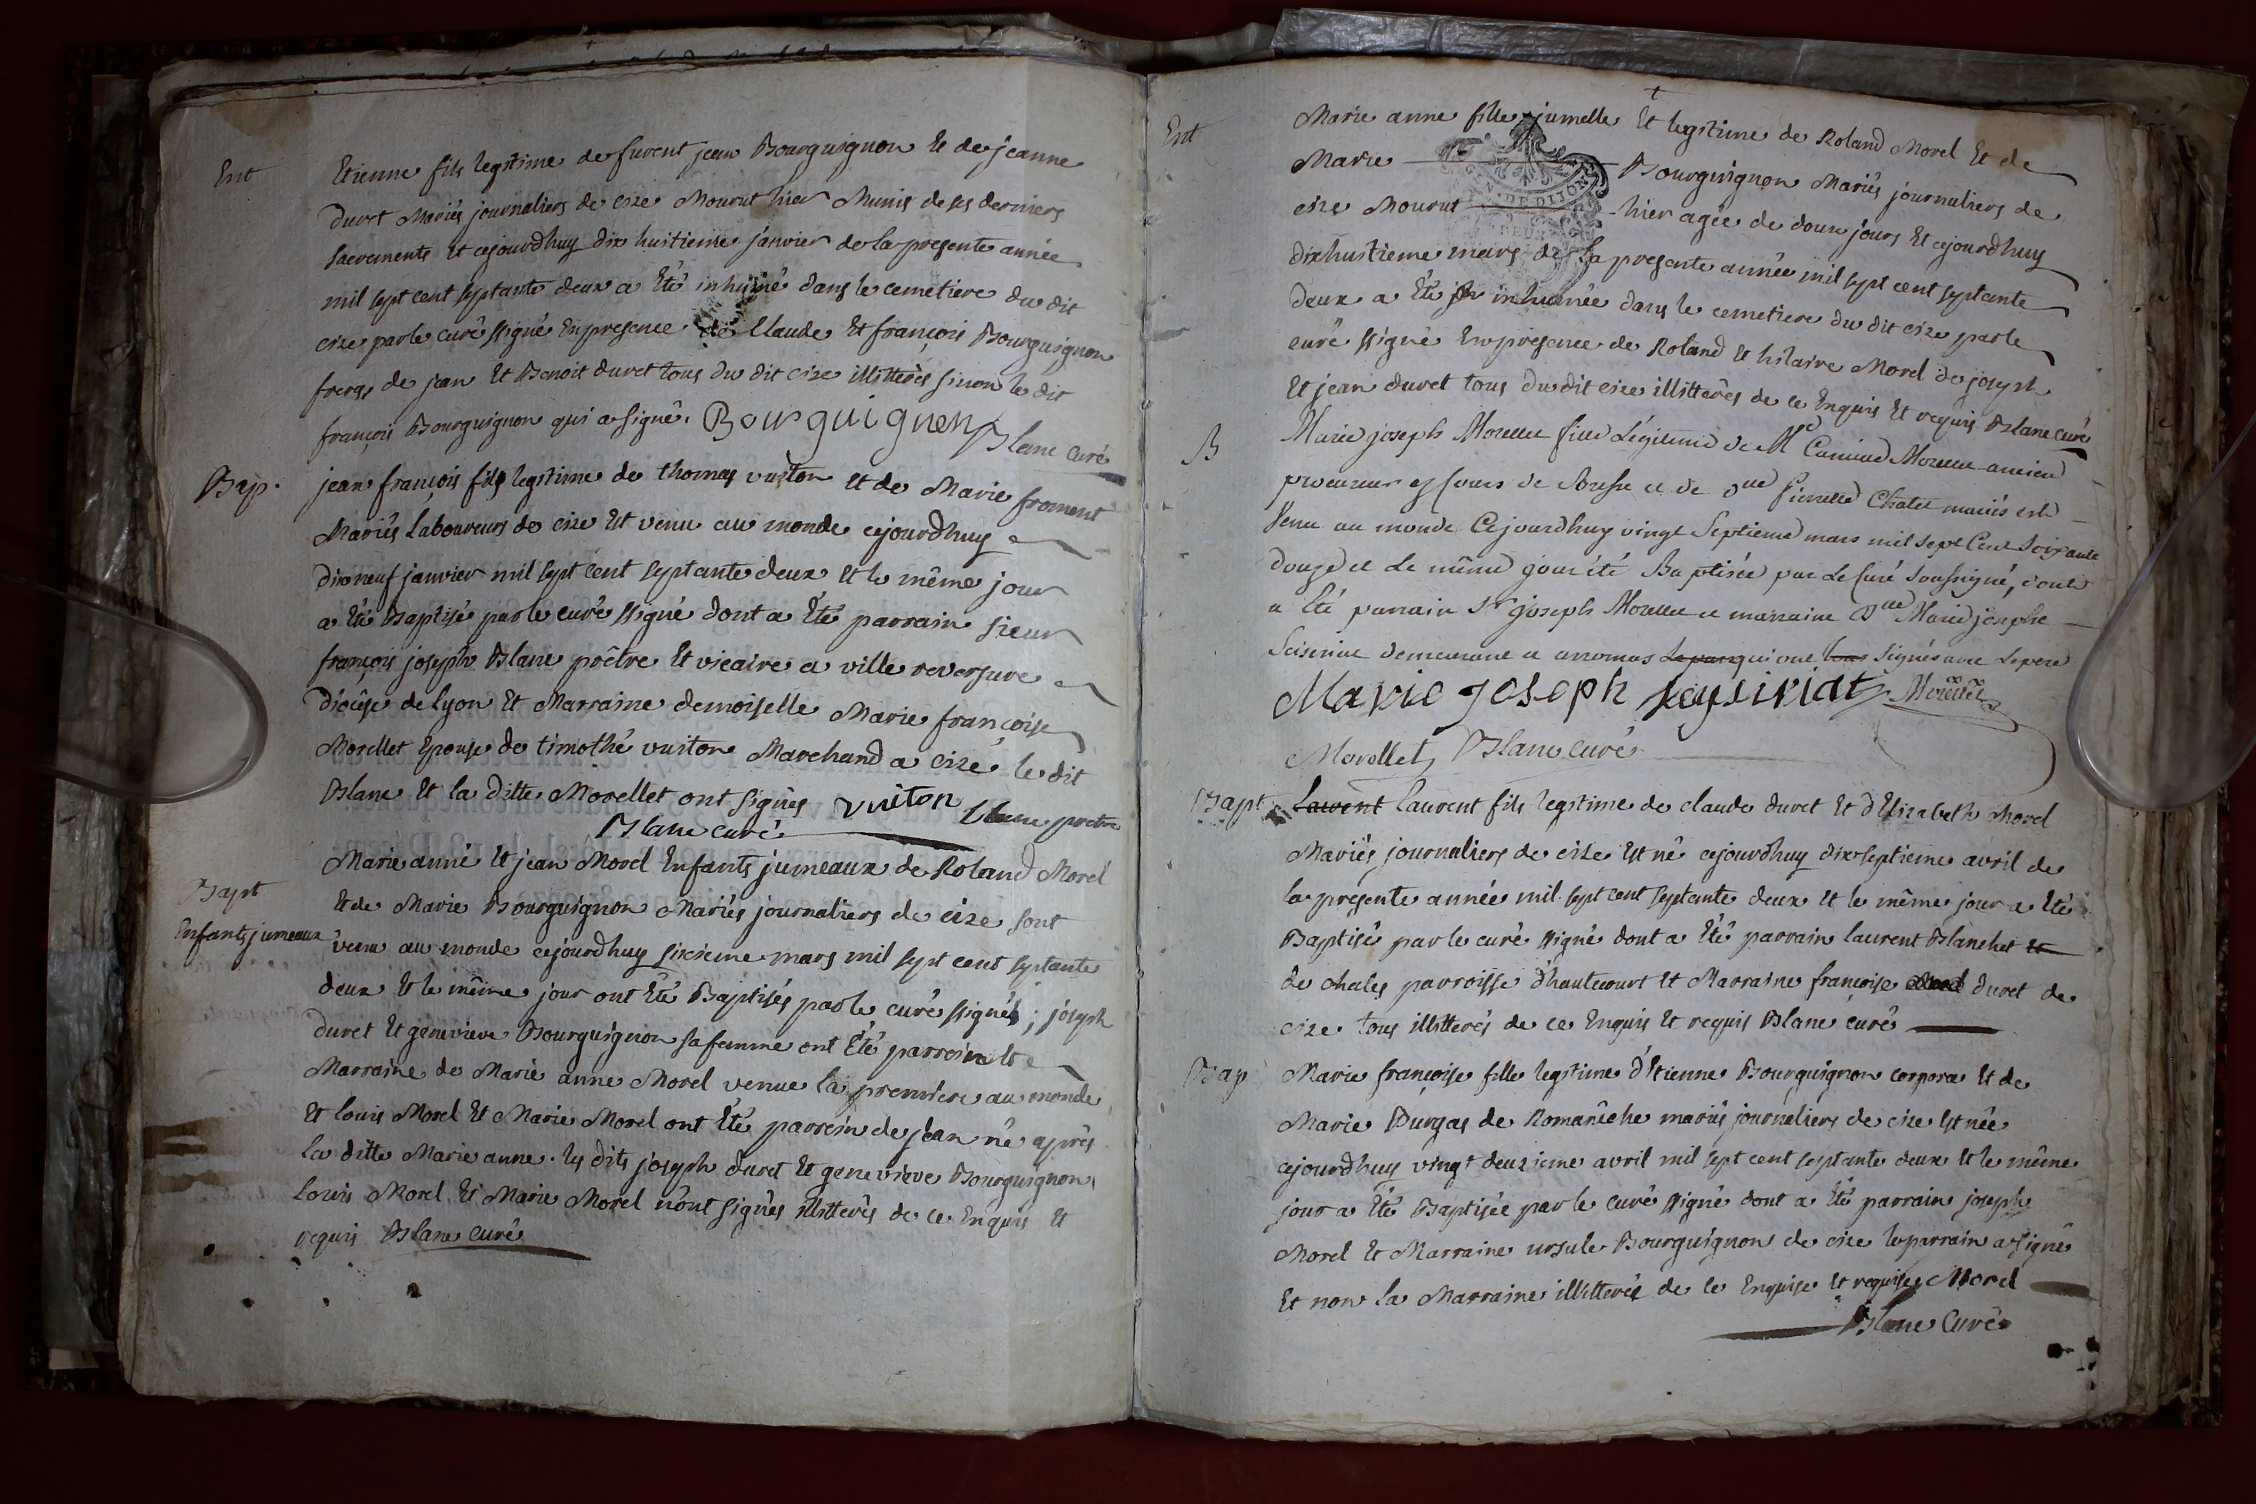 Ent
Etienne fils legitime de furent jean Bourguignon Et de jeanne
duret Mariés journaliers de cize Mourut hier Munis de ses derniers
sacrements Et cejourdhuy dix huitieme janvier de la presente année
mil sept cent septante deux a Eté inhumé dans le cemetiere du dit
cize par le curé ssigné En presence de Claude Et françois Bourguignon
freres de jean Et Benoit duret tous du dit cize illitterés sinon le dit
françois Bourguignon qui a signé. Bourguignon
Blanc curé
Bap.
jean françois fils legitime de thomas vuiton et de Marie froment
Mariés Laboureurs de cize Est venu au monde cejourdhuy
dixneuf janvier mil sept cent septante deux Et le même jour
a Eté Baptisé par le curé ssigné dont a Eté parrain sieur
françois joseph Blanc prêtre Et vicaire a ville reversure
diocèse de Lyon Et Marraine demoiselle Marie françoise
Morellet Epouse de timothé vuiton Marchand a cizé le dit
Blanc Et la ditte Morellet ont signés vuiton Blanc pretre
Blanc curé
Bapt
Enfants jumeaux
Marie anne Et jean Morel Enfants jumeaux de Roland Morel
Et de Marie Bourguignon Mariés journaliers de cize sont
venu au monde cejourdhuy sixieme mars mil sept cent septante
deux Et le même jour ont Eté Baptisés par le curé ssigné ; joseph
duret Et genevieve Bourguignon sa femme ont Eté parrain Et
Marraine de Marie anne Morel venue la premiere au monde
Et louis Morel Et Marie Morel ont Eté parrein de jean né aprés
la ditte Marie anne. les dits joseph duret Et genevieve Bourguignon
Louis Morel Et Marie Morel n'ont signés illitterés de ce Enquis Et
requis Blanc curé
Ent
Marie anne fille jumelle Et legitime de Roland Morel Et de
Marie Bourguignon Mariés journaliers de
cize Mourut hier agée de douze jours Et cejourdhuy
dixhuitieme mars de la presente année mil sept cent septante
deux a Eté inhumée dans le cemetiere du dit cize par le
curé ssigné En presence de Roland Et hilaire Morel de joseph
Et jean duret tous du dit cize illitterés de ce Enquis Et requis Blanc curé
B
Marie joseph Morellet fille Légitime de Me Camille Morellet ancien
procureur es Cours de Bresse et de dlle Pierrette Chatel mariés est
Venu au monde Cejourdhuy vingt Septieme mars mil sept Cent Soixante
Douze et Le même jour été Baptisée par Le Curé Soussigné, dont
a Eté parrain Sr joseph Morellet et marraine Dlle Marie josephe
demeurant a arromas qui ont tous Signés avec Le pere
Marie Joseph Seysiriat Morellet
Morellet Blanc curé
Bapt
Lawent Laurent fils legitime de claude duret Et d'Elizabeth Morel
Mariés journaliers de cize Est né cejourdhuy dixseptieme avril de
la presente année mil sept cent septante deux Et le même jour a Eté
Baptisé par le curé ssigné dont a Eté parrain laurent Blanchet Et
de chales parroisse d'hautecourt Et Marraine françoise Morel duret de
cize tous illitterés de ce Enquis Et requis Blanc curé
Bap
Marie françoise fille legitime d'Etienne Bourguignon corporax Et de
Marie Durgas de Romanêche mariés journaliers de cize Est née
cejourdhuy vingt deuzieme avril mil sept cent septante deux Et le même
jour a Eté Baptisée par le curé ssigné dont a Eté parrain joseph
Morel Et Marraine ursule Bourguignon de cize le parrain a signé
Et non la Marraine illitterée de ce Enquise Et requise Morel
Blanc Curé